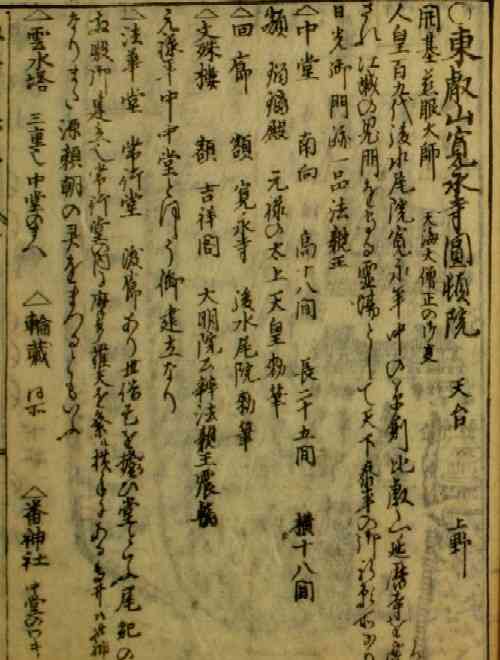 ○東叡山寛永寺圓頓院 天台 上野
開基慈眼大師 天海大僧正の御事
人皇百九代後水尾院寛永年中の草創比叡山延暦寺を
され江城の鬼門を守る霊場として天下泰平の御祈願所
日光御門跡一品法親王
△中堂 南向 高十八間 長二十五間 横十八間
額 瑠璃殿 元禄の太上天皇勅筆
△回廊 額 寛永寺 後水尾院勅筆
△文殊楼 額 吉祥閣 大明院公辨法親王震筆
元禄年中中堂と同う御建立なり
△法華堂 常行堂 渡廊あり世俗是を擔ひ堂といふ尾紀の
御建立常行堂の内に摩多羅天を
なりまた源頼朝の霊をまつるともいふ
△雲水塔 三重 中堂の △輪蔵 同所 △番神社 中堂のワキ